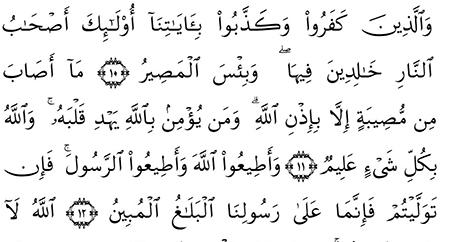 وَٱلَّذِينَ كَفَرُوا۟ وَكَذَّبُوا۟ بِـَٔايَـٰتِنَآ أُو۟لَـٰٓئِكَ أَصْحَـٰبُ
ٱلنَّارِ خَـٰلِدِينَ فِيهَا ۖ وَبِئْسَ ٱلْمَصِيرُ ١٠ مَآ أَصَابَ
مِن مُّصِيبَةٍ إِلَّا بِإِذْنِ ٱللَّهِ ۗ وَمَن يُؤْمِنۢ بِٱللَّهِ يَهْدِ قَلْبَهُۥ ۚ وَٱللَّهُ
بِكُلِّ شَىْءٍ عَلِيمٌ ١١ وَأَطِيعُوا۟ ٱللَّهَ وَأَطِيعُوا۟ ٱلرَّسُولَ ۚ فَإِن
تَوَلَّيْتُمْ فَإِنَّمَا عَلَىٰ رَسُولِنَا ٱلْبَلَـٰغُ ٱلْمُبِينُ ١٢ ٱللَّهُ لَآ